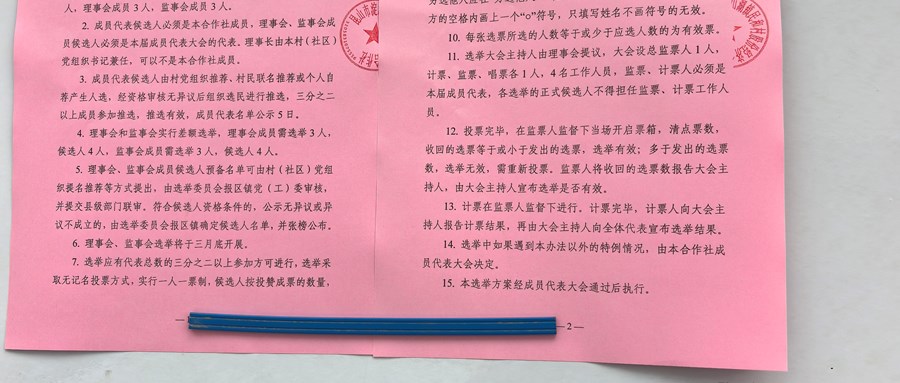 人，理事会成员 3 人，监事会成员 3 人。
2. 成员代表候选人必须是本合作社成员，理事会、监事会成
员候选人必须是本届成员代表大会的代表。理事长由本村（社区）
党组织书记兼任，可以不是本合作社成员。
3. 成员代表候选人由村党组织推荐、村民联名推荐或个人自
荐产生人选，经资格审核无异议后组织选民进行推选，三分之二
以上成员参加推选，推选有效，成员代表名单公示 5 日。
4. 理事会和监事会实行差额选举，理事会成员需选举 3 人，
候选人 4 人，监事会成员需选举 3 人，候选人 4 人。
5. 理事会、监事会成员候选人预备名单可由村（社区）党组
织提名推荐等方式提出，由选举委员会报区镇党（工）委审核，
并提交县级部门联审。符合候选人资格条件的，公示无异议或异
议不成立的，由选举委员会报区镇确定候选人名单，并张榜公布。
6. 理事会、监事会选举将于三月底开展。
7. 选举应有代表总数的三分之二以上参加方可进行，选举采
取无记名投票方式，实行一人一票制，候选人按投赞成票的数量，
方的空格内画上一个“o”符号，只填写姓名不画符号的无效。
10. 每张选票所选的人数等于或少于应选人数的为有效票。
11. 选举大会主持人由理事会提议，大会设总监票人 1 人，
计票、监票、唱票各 1 人，4 名工作人员，监票、计票人必须是
本届成员代表，各选举的正式候选人不得担任监票、计票工作人
员。
12. 投票完毕，在监票人监督下当场开启票箱，清点票数，
收回的选票等于或小于发出的选票，选举有效；多于发出的选票
数，选举无效，需重新投票。监票人将收回的选票数报告大会主
持人，由大会主持人宣布选举是否有效。
13. 计票在监票人监督下进行。计票完毕，计票人向大会主
持人报告计票结果，再由大会主持人向全体代表宣布选举结果。
14. 选举中如果遇到本办法以外的特例情况，由本合作社成
员代表大会决定。
15. 本选举方案经成员代表大会通过后执行。
— 2 —